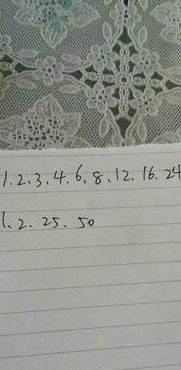 1.2、3、4、6、8、12、16、24
1、2、25、50